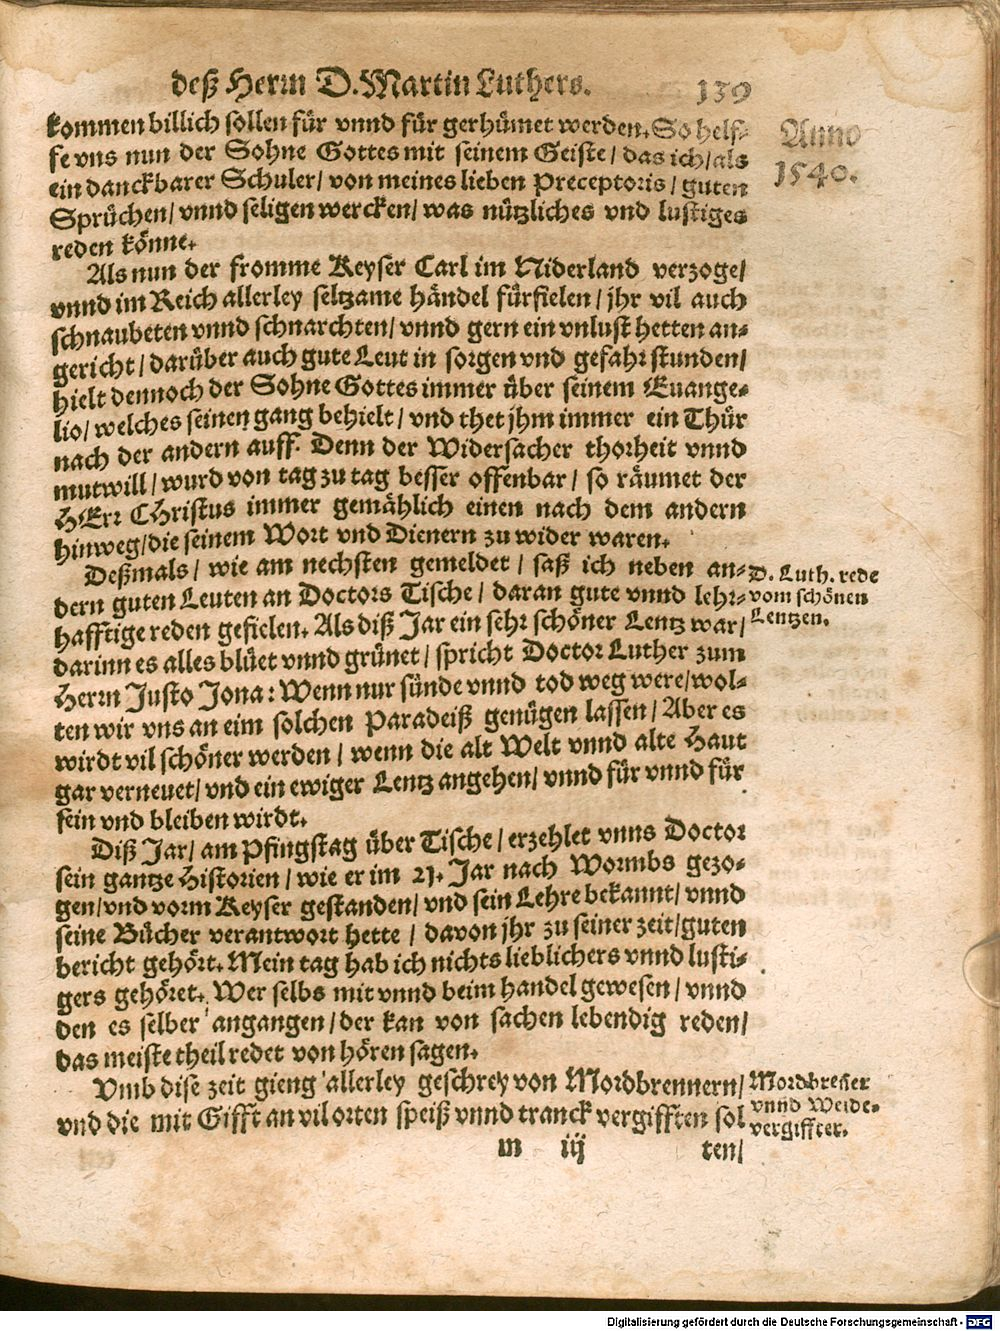 deß Herrn D. Martin Luthers. 139
Anno
1540.
kommen billich sollen für vnnd für gerhümet werden. So helf-
fe vns nun der Sohne Gottes mit seinem Geiste / das ich / als
ein danckbarer Schuler / von meines lieben Preceptoris / guten
Sprüchen / vnnd seligen wercken / was nützliches vnd lustiges
reden könne.
Als nun der fromme Keyser Carl im Niderland verzoge /
vnnd im Reich allerley seltzame händel fürfielen / jhr vil auch
schnaubeten vnnd schnarchten / vnnd gern ein vnlust hetten an-
gericht / darüber auch gute Leut in sorgen vnd gefahr stunden /
hielt dennoch der Sohne Gottes immer über seinem Euange-
lio / welches seinen gang behielt / vnd thet jhm immer ein Thür
nach der andern auff. Denn der Widersacher thorheit vnnd
mutwill / wurd von tag zu tag besser offenbar / so räumet der
HErr CHristus immer gemählich einen nach dem andern
hinweg / die seinem Wort vnd Dienern zu wider waren.
Deßmals / wie am nechsten gemeldet / saß ich neben an-
dern guten Leuten an Doctors Tische / daran gute vnnd lehr-
hafftige reden gefielen. Als diß Jar ein sehr schöner Lentz war /
darinn es alles blüet vnnd grünet / spricht Doctor Luther zum
Herrn Justo Jona: Wenn nur sünde vnnd tod weg were / wol-
ten wir vns an eim solchen Paradeiß genügen lassen / Aber es
wirdt vil schöner werden / wenn die alt Welt vnnd alte Haut
gar verneuet / vnd ein ewiger Lentz angehen / vnnd für vnnd für
sein vnd bleiben wirdt.
D. Luth. rede
vom schönen
Lentzen.
Diß Jar / am Pfingstag über Tische / erzehlet vnns Doctor
sein gantze Historien / wie er im 21. Jar nach Wormbs gezo-
gen / vnd vorm Keyser gestanden / vnd sein Lehre bekannt / vnnd
seine Bücher verantwort hette / davon jhr zu seiner zeit / guten
bericht gehört. Mein tag hab ich nichts lieblichers vnnd lusti-
gers gehöret. Wer selbs mit vnnd beim handel gewesen / vnnd
den es selber angangen / der kan von sachen lebendig reden /
das meiste theil redet von hören sagen.
Vmb dise zeit gieng allerley geschrey von Mordbrennern /
vnd die mit Gifft an vil orten speiß vnnd tranck vergifften sol
Mordbreñer
vnnd Weide-
vergiffter.
m iij ten /
Digitalisierung gefördert durch die Deutsche Forschungsgemeinschaft - DFG